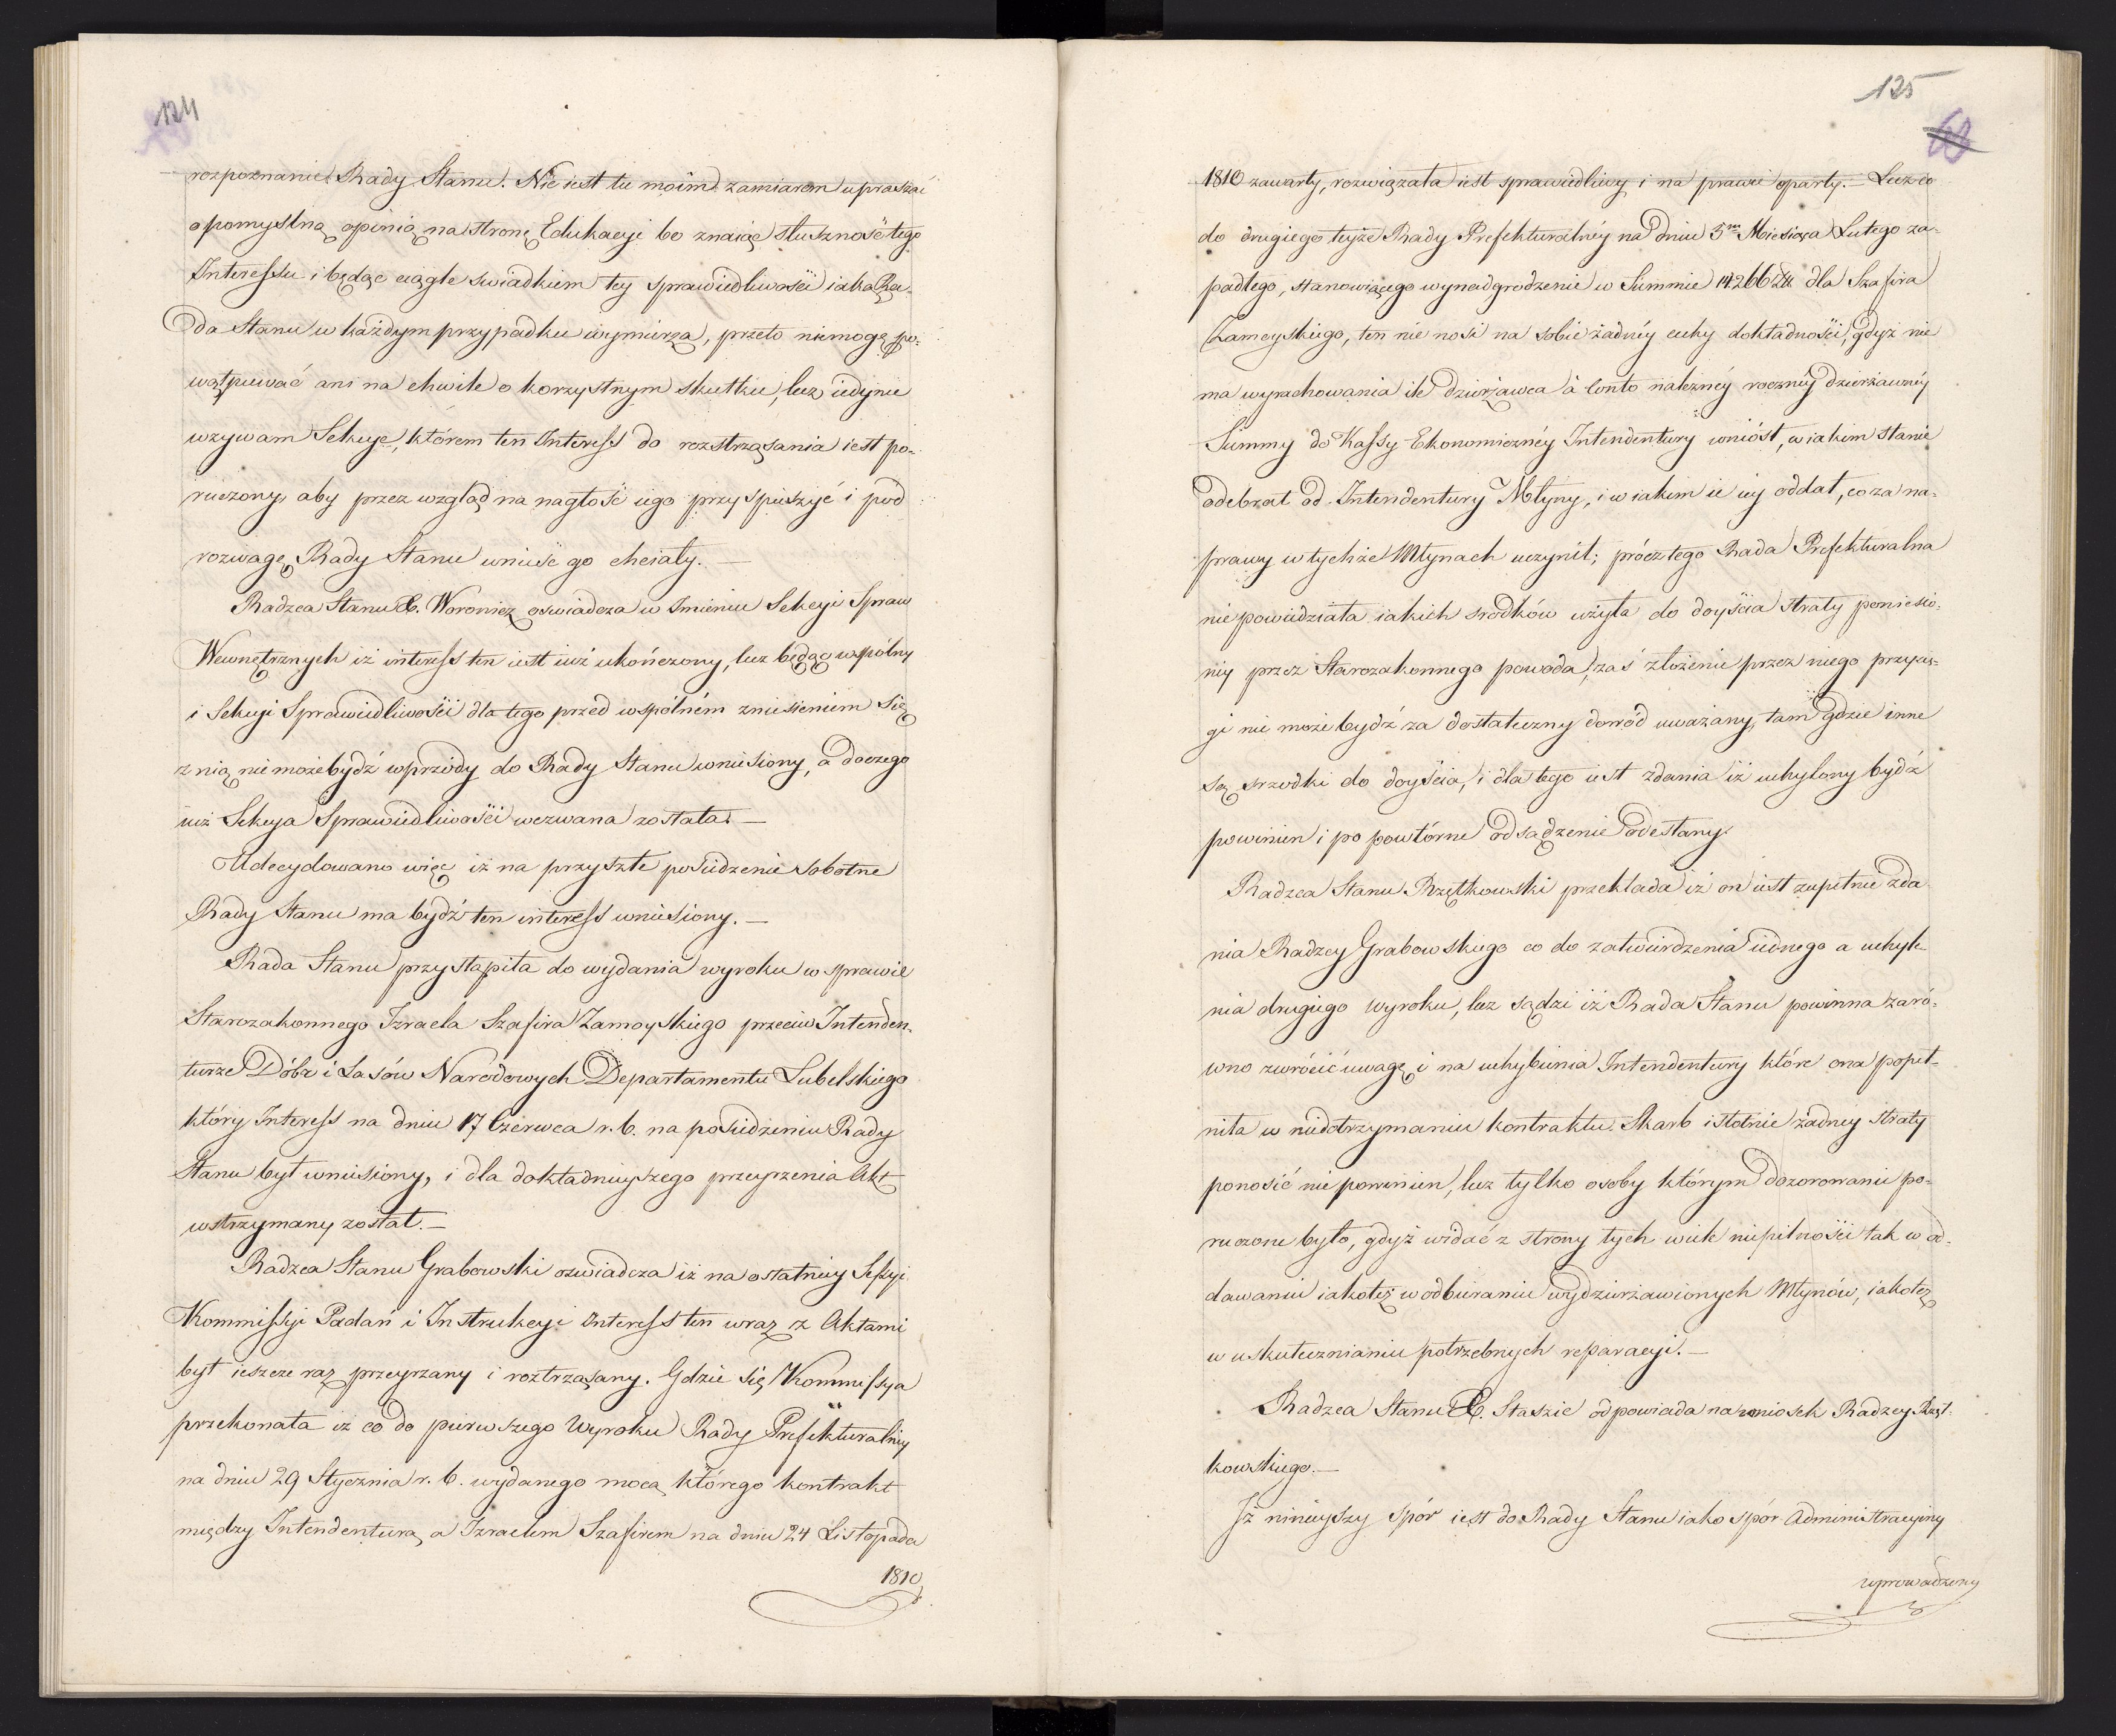 124
rozpoznanie Rady Stanu. Nie iest tu moim zamiarem upraszać
o pomyslną opinią na stronę Edukacyi bo znaiąc słusznosć tego
Interessu i będąc ciągle swiadkiem tey sprawiedliwości iaką Ra-
da Stanu w każdym przypadku wymierza, przeto niemogę po-
wątpiewać ani na chwile o korzystnym skutku, lecz iedynie
wzywam Sekcye, którem ten Interess do rozstrząsania iest po-
ruczony, aby przez wzgląd na nagłość iego przyspieszyć i pod
rozwagę Rady Stanu wnieść go chciały. —
Radzca Stanu X. Woronicz oswiadcza w Imieniu Sekcyi Spraw
Wewnętrznych iż interess ten iest iuż ukończony, lecz będąc wspólny
i Sekcyi Sprawiedliwości dla tego przed wspólném zniesieniem się
z nią nie może bydź wprzódy do Rady Stanu wniesiony, a do czego
iuż Sekcya Sprawiedliwości wezwana została. —
Udecydowano więc iż na przyszłe posiedzenie sobotne
Rady Stanu ma bydź ten interess wniesiony. —
Rada Stanu przystąpiła do wydania wyroku w sprawie
Starozakonnego Izraela Szafira Zamoyskiego przeciw Intenden-
turze Dóbr i Lasów Narodowych Departamentu Lubelskiego
który Interess na dniu 17 Czerwca r. b. na posiedzeniu Rady
Stanu był wniesiony, i dla dokładnieyszego przeyrzenia Akt
wstrzymany został. —
Radzca Stanu Grabowski oswiadcza iż na ostatniey Sessyi
Kommissyi Podań i Instrukcyi Interess ten wraz z Aktami
był ieszcze raz przeyrzany i roztrząsany. Gdzie się Kommissya
przekonała iż co do pierwszego Wyroku Rady Prefekturalney
na dniu 29 Stycznia r. b. wydanego mocą którego kontrakt
między Intendenturą a Izraelem Szafirem na dniu 24 Listopada
1810
125
1810 zawarty, rozwiązała iest sprawiedliwy i na prawie oparty. — Lecz co
do drugiego teyże Rady Prefekturalnéy na dniu 5 Miesiąca Lutego za-
padłego, stanowiącego wynadgrodzenie w Summie 14266 dla Szafira
Zamoyskiego, ten nie nosi na sobie żadnéy cechy dokładności, gdyż nie
ma wyrachowania ile dzierżawca à Conto należnéy rocznéy dzierżawnéy
Summy do Kassy Ekonomicznéy Intendentury wniósł, w iakim stanie
odebrał od Intendentury Młyny, i w iakim ie iey oddał, co za na-
prawy w tychże Młynach uczynił; prócz tego Rada Prefekturalna
nie powiedziała iakich srodków użyła do doyścia straty poniesio-
ney przez Starozakonnego powoda, zaś złożenie przez niego przysię-
gi nie może bydź za dostateczny dowód uważany, tam gdzie inne
są srzodki do doyścia, i dla tego iest zdania iż uchylony bydź
powinien i po powtórne odsądzenie odesłany.
Radzca Stanu Rzętkowski przekłada iż on iest zupełnie zda
nia Radzcy Grabowskiego co do zatwierdzenia iednego a uchyle-
nia drugiego wyroku, lecz sądzi iż Rada Stanu powinna zaró-
wno zwrócić uwagę i na uchybienia Intendentury które ona popeł-
niła w niedotrzymaniu kontraktu. Skarb istotnie żadney straty
ponosić nie powinien, lecz tylko osoby którym dozorowanie po-
ruczone było, gdyż widać z strony tych wiele niepilności tak w od-
dawaniu iakoteż w odbieraniu wydzierżawionych Młynów, iakoteż
w uskutecznianiu potrzebnych reparacyi. —
Radzca Stanu X. Staszic odpowiada na wniosek Radzcy Rzęt-
kowskiego. —
Iż ninieyszy spór iest do Rady Stanu iako spór Administracyiny
wprowadzony